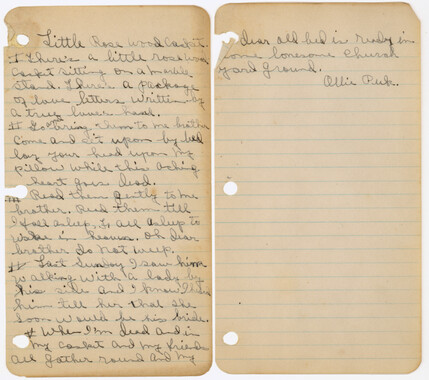 Little Rose Wood Casket.
I There's a little rosewood
Casket sitting on a marble
Stand. There's a package
of love letters written by
a true lovers hand.
II Go bring them to me brother
Come and sit upon my bed
lay your head upon my
pillow while this aching
heart goes dead.
III Read them gently to me
brother. Read them till
I fall asleep, fall asleep to
wake in heaven. Oh dear
brother do not weep.
Last Sunday I saw him
walking with a lady by
his side and I know I
him tell her that she
soon would be his bride.
When I'm dead and in
my casket and my friends
all gather round and my
dear old bed is ready in
some lonesome church
yard ground.
Ollie